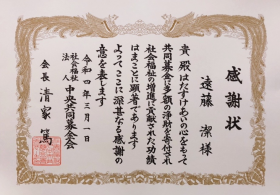 感謝状
遠藤 潔様
貴殿はたすけあいの心をもって
共同募金に多額の浄財を寄付され
社会福祉の増進に貢献された功績
はまことに顕著であります
よってここに深甚なる感謝の
意を表します
令和四年三月一日
社会福祉法人 中央共同募金会
会長 清家 篤